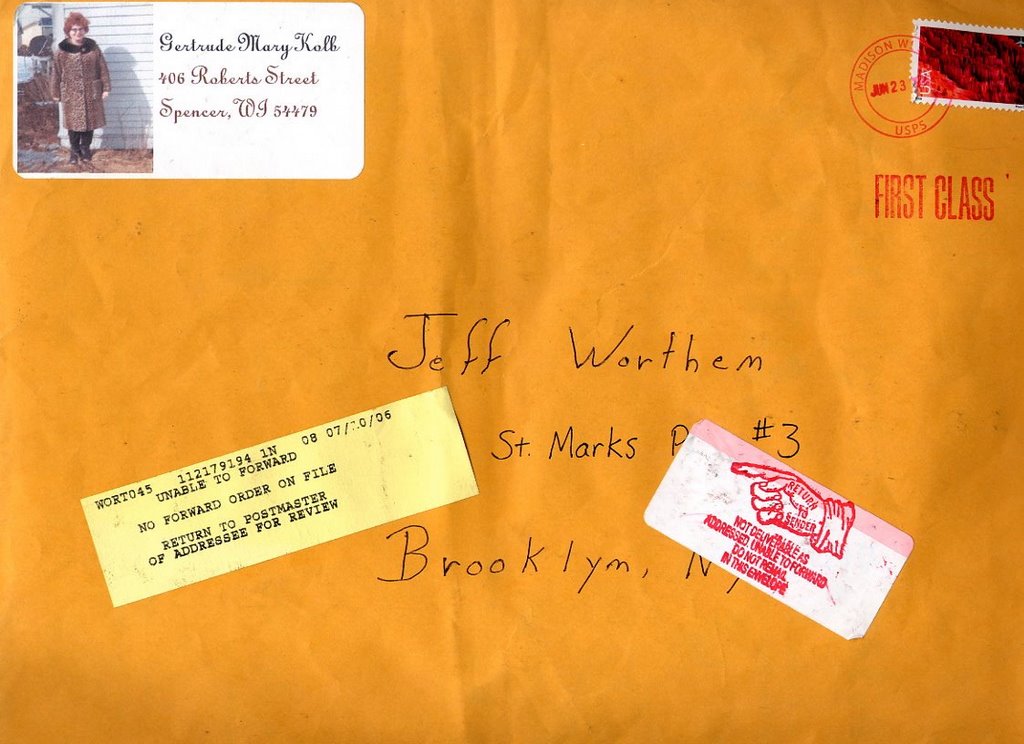 Gertrude Mary Kolb
406 Roberts Street
Spencer, WI 54479
MADISON
JUN 23
USPS
USA
FIRST CLASS
Jeff Worthem
St. Marks #3
Brooklyn, NY
WORT045 112179194 1N 08 07/10/06
UNABLE TO FORWARD
NO FORWARD ORDER ON FILE
RETURN TO POSTMASTER
OF ADDRESSEE FOR REVIEW
RETURN
TO
SENDER
NOT DELIVERABLE AS
ADDRESSED UNABLE TO FORWARD
DO NOT REMAIL
IN THIS ENVELOPE